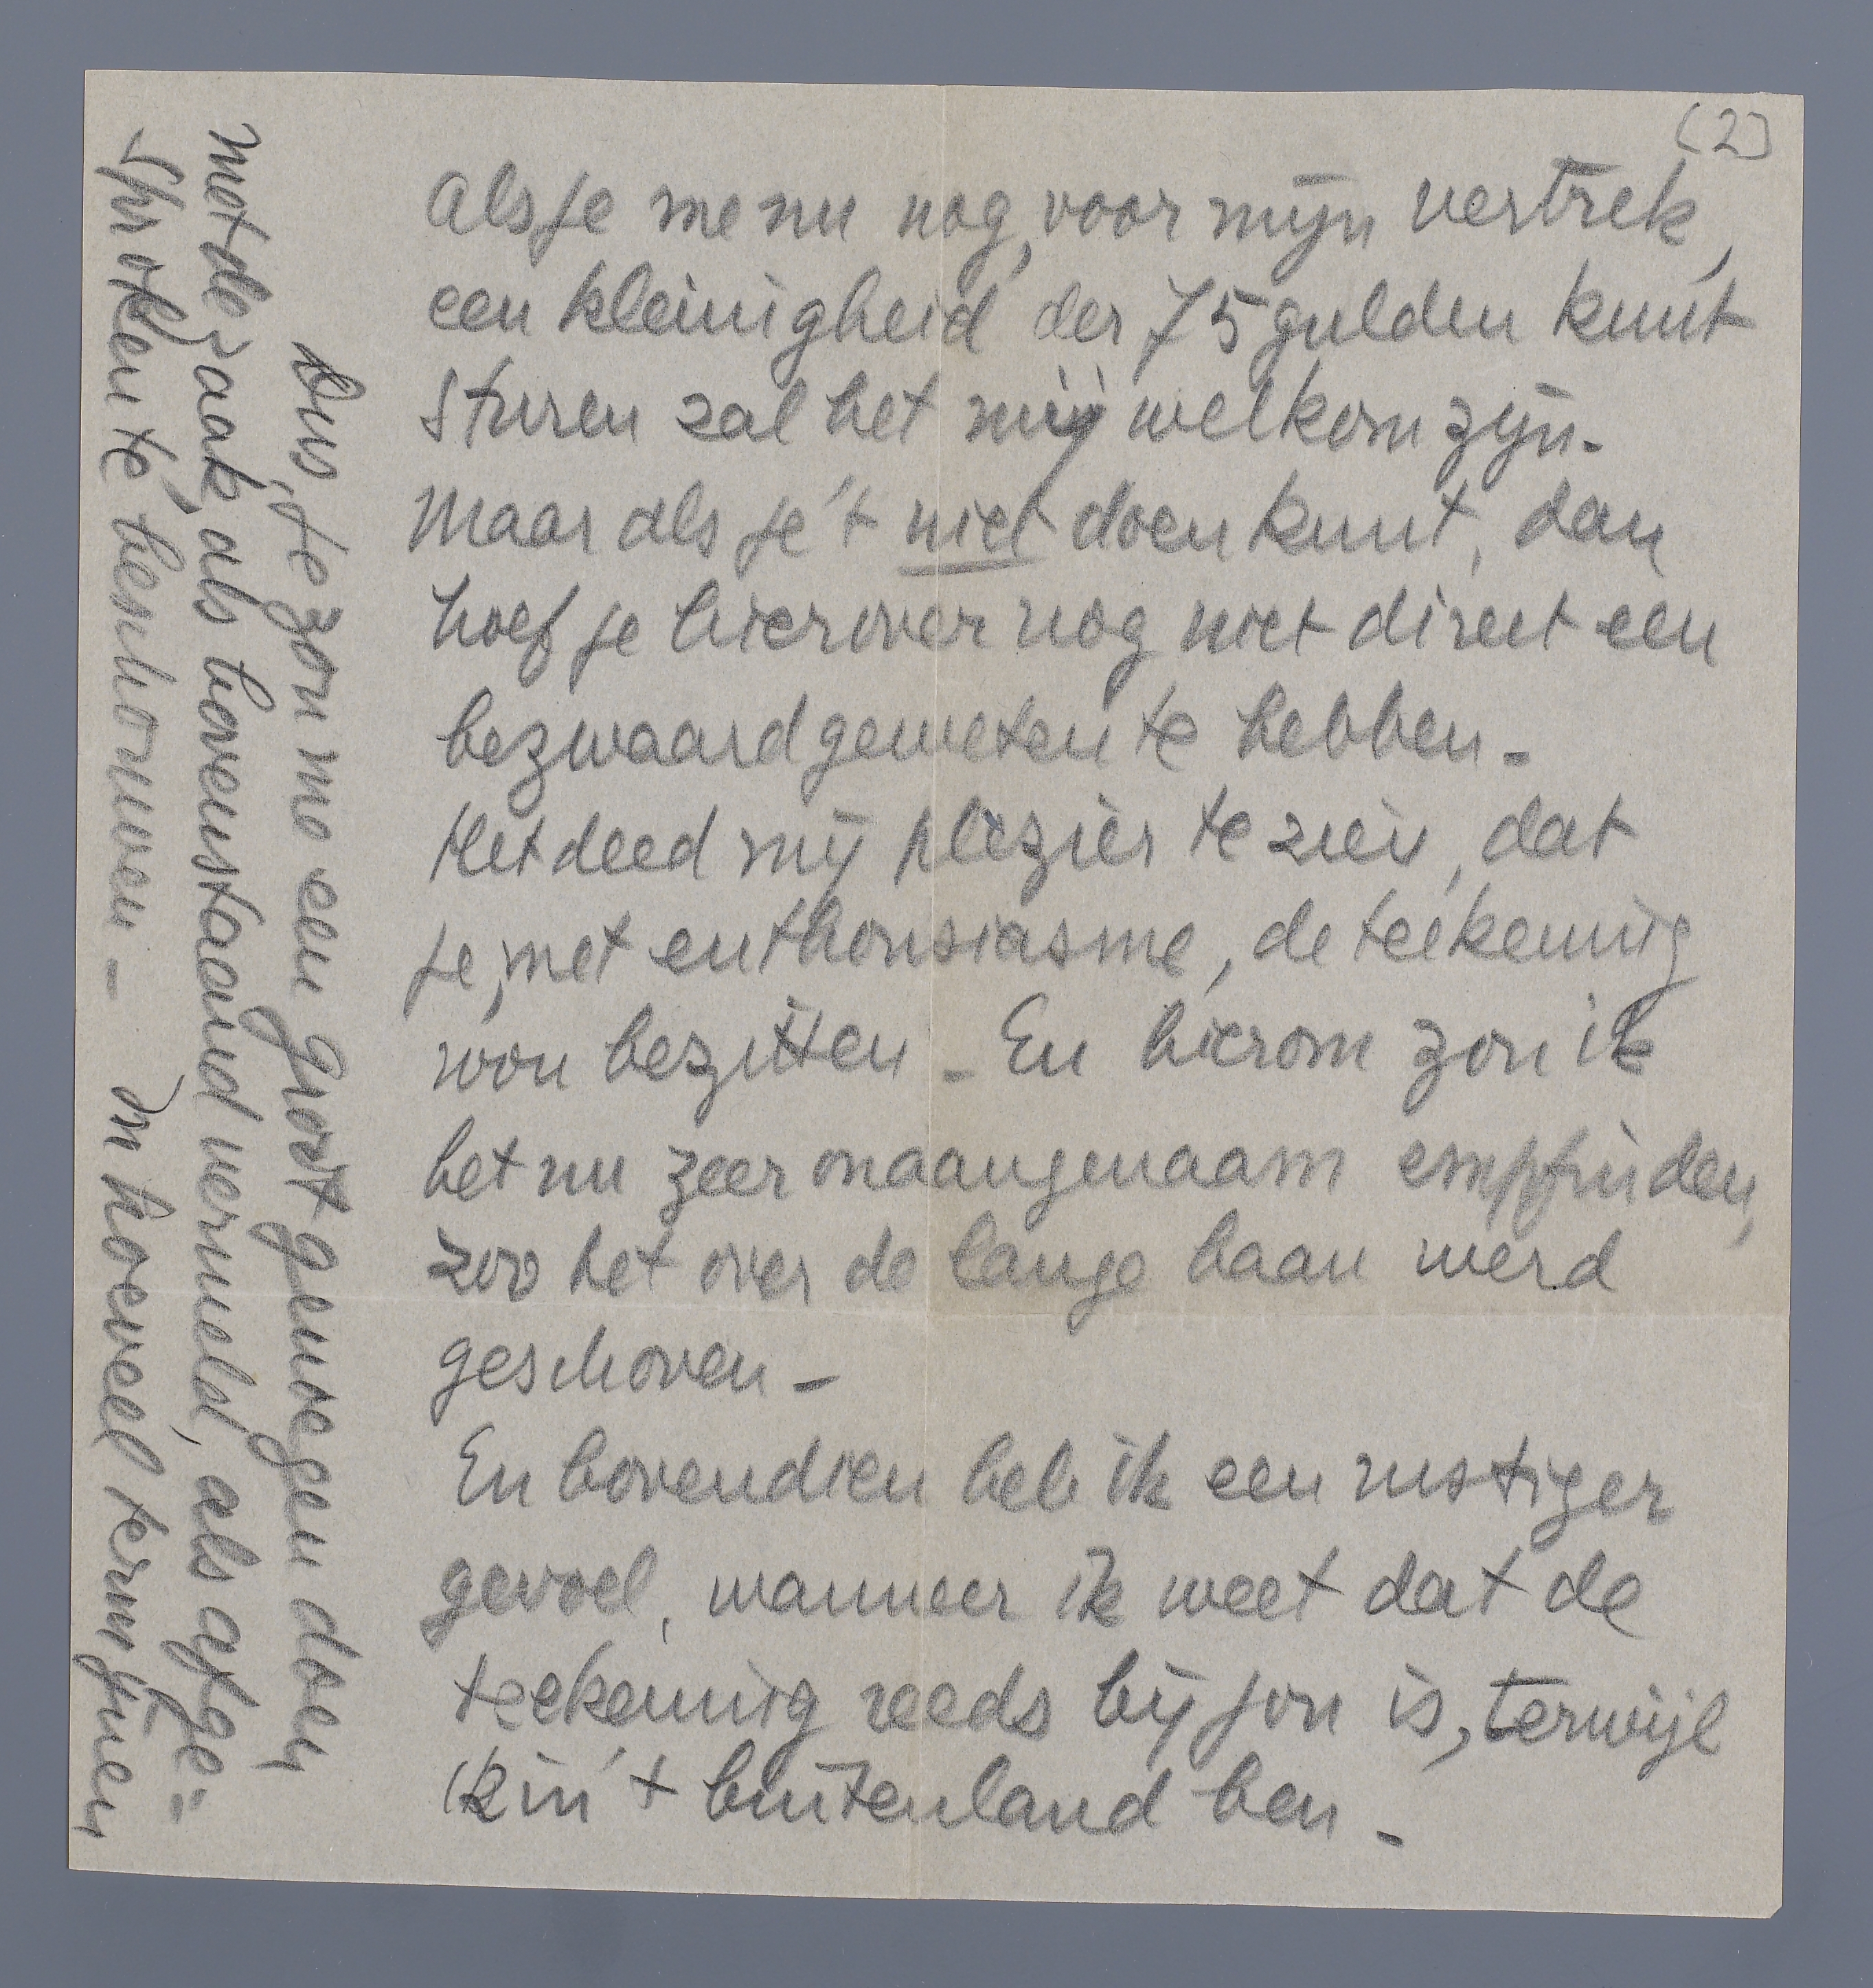 (2)
Als je me nu nog, voor mijn vertrek,
een kleinigheid der 75 gulden kunt
sturen zal het mij welkom zijn.
Maar als je 't niet doen kunt, dan
hoef je hierover nog niet direct een
bezwaard geweten te hebben –
Het deed mij plezier te zien, dat
je, met enthousiasme, de teekening
wou bezitten – En hierom zou ik
het nu zeer onaangenaam empfinden,
zoo het over de lange baan werd
geschoven –
En bovendien heb ik een rustiger
gevoel, wanneer ik weet dat de
teekening reeds bij jou is, terwijl
ik in 't buitenland ben –
Dus, je zou me een groot genoegen doen
met de zaak, als bovenstaand vermeld, als afge=
sproken te beschouwen – In hoeveel termijnen